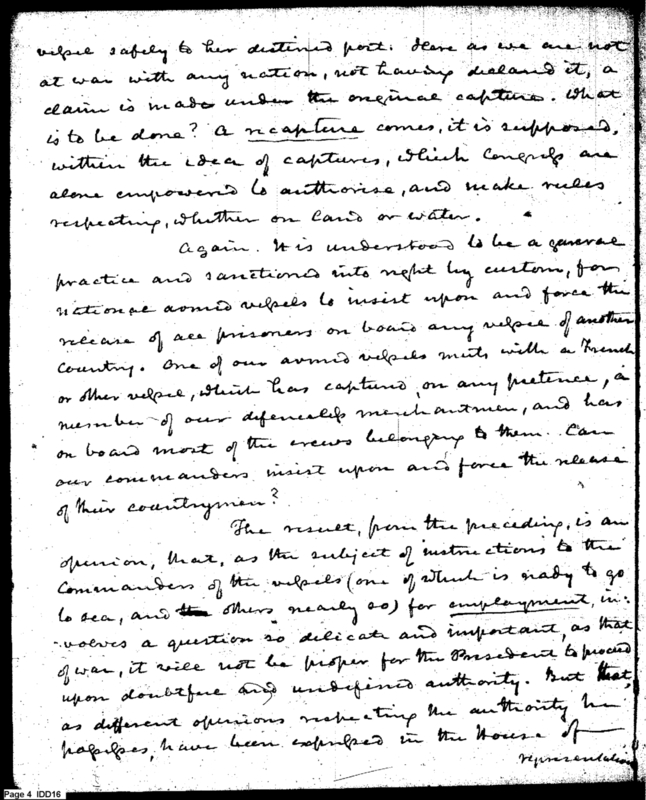 vessel safely to her destined port. Here as we are not
at war with any nation, not having declared it, a
claim is made under the original capture. What
is to be done? A recapture comes, it is supposed,
within the idea of captures, which Congress are
alone empowered to authorise, and make rules
respecting, whether on land or water.
Again. It is understood to be a general
practice and sanctioned into right by custom, for
national armed vessels to insist upon and force the
release of all prisoners on board any vessel of another
country. One of our armed vessels meets with a French
or other vessel, which has captured, on any pretence, a
number of our defenceless merchantmen, and has
on board most of the crews belonging to them. Can
our commanders insist upon and force the release
of their countrymen?
The result, from the preceding, is an
opinion, that, as the subject of instructions to the
Commanders of the vessels (one of which is ready to go
to sea, and the others nearly so) for employment, in-
volves a question so delicate and important, as that
of war, it will not be proper for the President to proceed
upon doubtful and undefined authority. But that,
as different opinions respecting the authority he
possesses, have been expressed in the House of
representatives
Page 4 IDD16